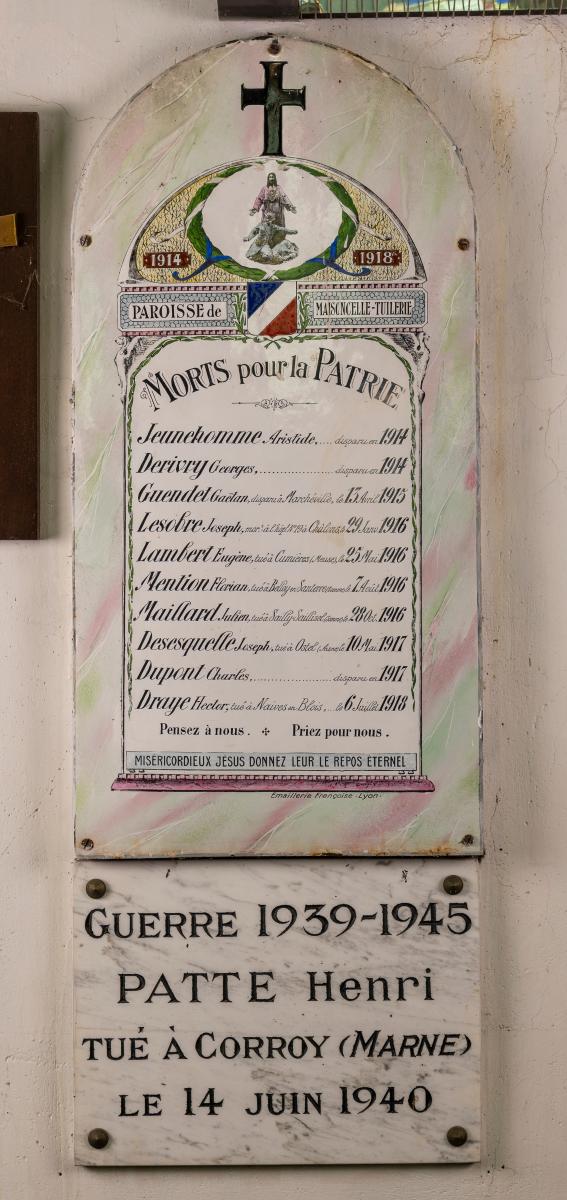 1914 1918
PAROISSE de MAISONCELLE-TUILERIE
MORTS pour la PATRIE
Jeunehomme Aristide, .... disparu en 1914
Derivry Georges, .................. disparu en 1914
Guendet Gaëtan, disparu à Marchéville, le 13 Avril 1915
Lesobre Joseph, mort à l'hôpl N°19 à Châlons, le 29 Janv 1916
Lambert Eugène, tué à Cumières (Meuse), le 25 Mai 1916
Mention Florian, tué à Belloy en Santerre (Somme), le 7 Août 1916
Maillard Julien, tué à Sailly-Saillisel (Somme), le 28 Oct. 1916
Desesquelle Joseph, tué à Ostel (Aisne), le 10 Mai 1917
Dupont Charles, .................. disparu en 1917
Draye Hector, tué à Naives en Blois, ... le 6 Juillet 1918
Pensez à nous. ✣ Priez pour nous.
MISÉRICORDIEUX JÉSUS DONNEZ LEUR LE REPOS ÉTERNEL
Emaillerie Française - Lyon
GUERRE 1939-1945
PATTE Henri
TUÉ À CORROY (MARNE)
LE 14 JUIN 1940